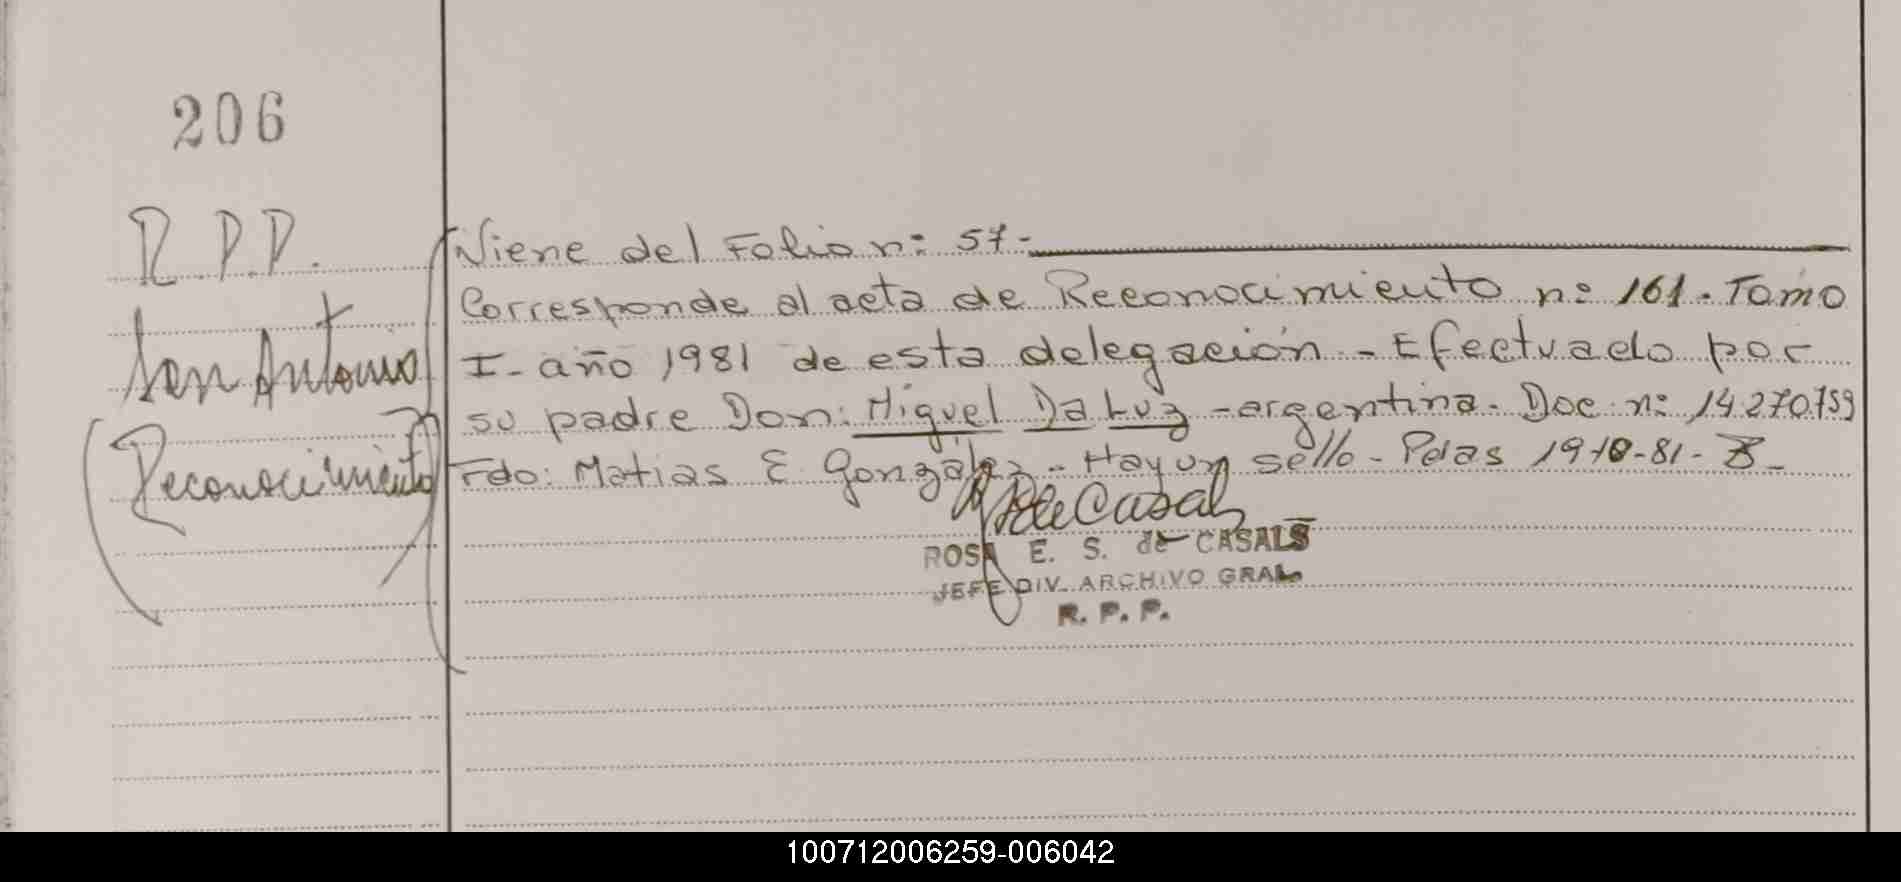 206
R.P.P.
San Antonio
(Reconocimiento)
Viene del Folio n: 57-
Corresponde al acta de Reconocimiento n: 161. Tomo
I- año 1981 de esta delegación - Efectuado por
su padre Don: Miguel Da Luz - argentina. Doc. n: 14.270.759
Fdo: Matias E González - Hay un sello - Pdas 19-10-81-
R de Casals
ROSA E. S. de CASALS
JEFE DIV. ARCHIVO GRAL
R. P. P.
100712006259-006042